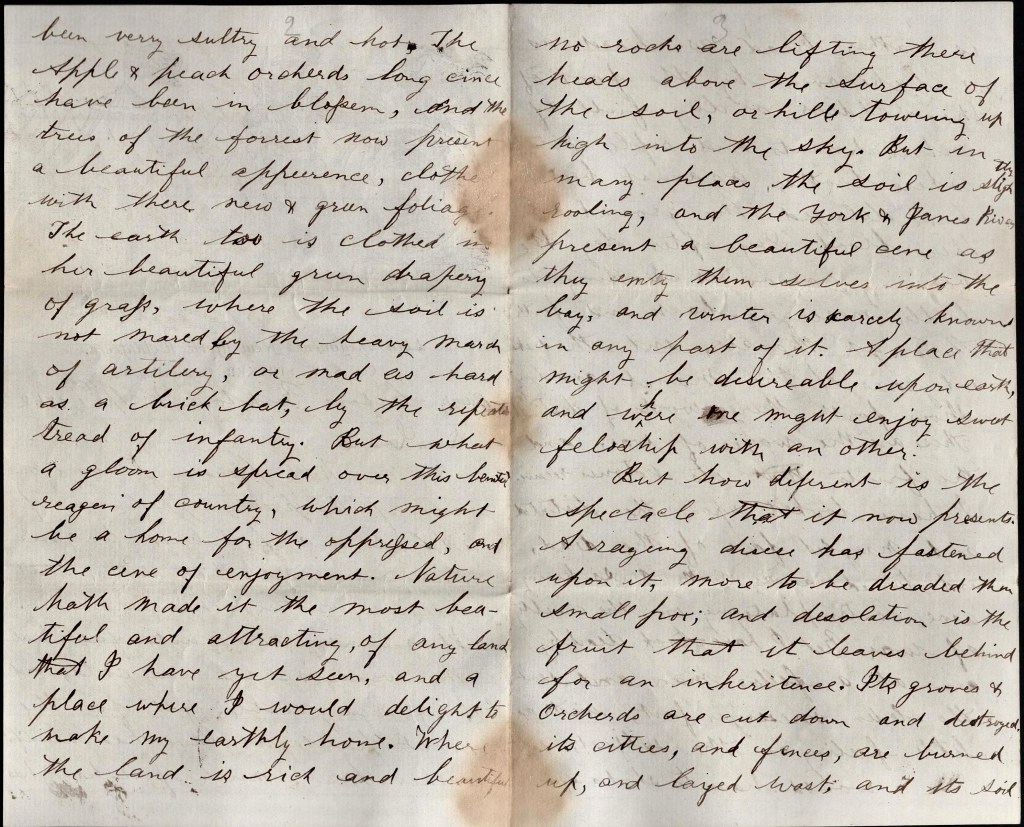 2
been very sultry and hot. The
Apple & peach orcherds long cince
have been in blossem, and the
trees of the forrest now present
a beautiful appeerence, clothe
with there new & green foliag
The earth too is clothed in
her beautiful green drapery
of grass, where the soil is
not mared by the heavy march
of artilery, or mad as hard
as a brick bat, by the repeate
tread of infantry. But what
a gloom is spread over this
reagein of country, which might
be a home for the oppressed, and
the cene of enjoyment. Nature
hath made it the most bea-
tiful and attracting, of any land
that I have yet seen, and a
place where I would delight to
make my earthly home. Where
the land is rich and beautiful
3
no rocks are lifting there
heads above the surface of
the soil, or hills towering up
high into the sky. But in
many plaas the soil is
rooling, and the York & James River
present a beautiful cene as
they emty them selves into the
bay, and winter is scarcely known
in any part of it. A place that
might be desireable upon earth,
and where one might enjoy sweet
feloship with an other.
But how diferent is the
spectacle that it now presents.
A rageing disese has fastened
upon it, more to be dreaded then
small pox; and desolation is the
fruit that it leaves behind
for an inheritence. Its groves &
Orcherds are cut down and destroyed.
its citties, and fences, are burned
up, and layed wast; and its soil